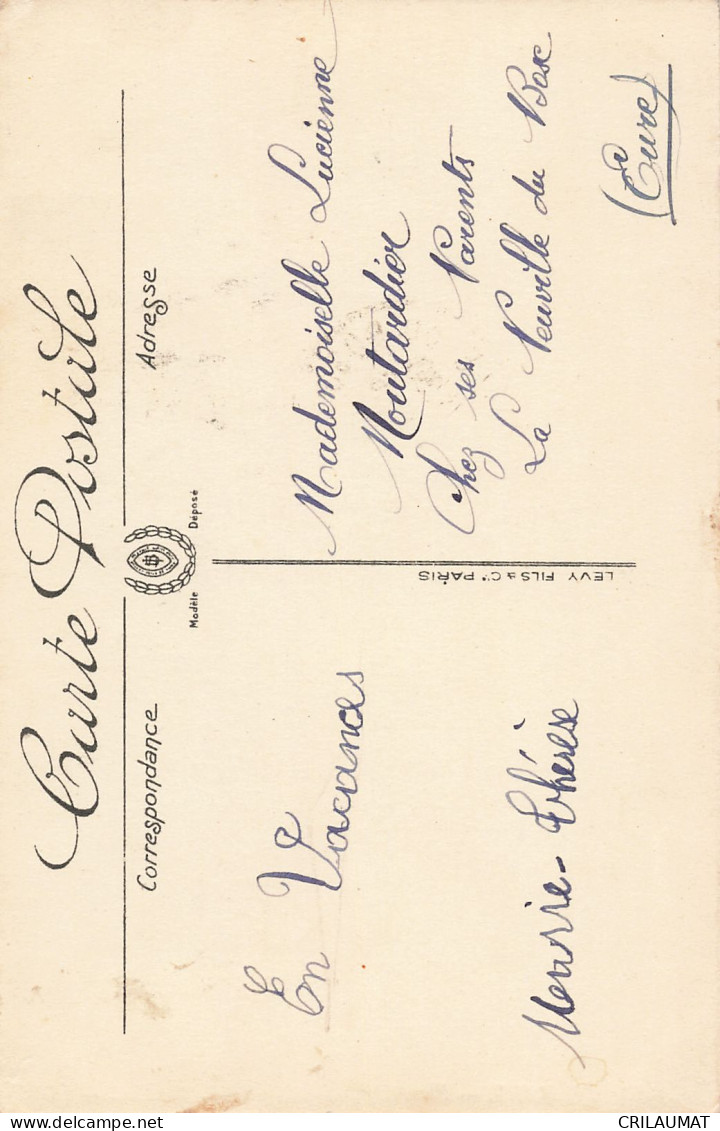 Carte Postale
Correspondance
Adresse
Modèle Déposé
En Vacances
Marie-Thérèse
LEVY FILS & Cie PARIS
Mademoiselle Lucienne
Moutardier
Chez ses Parents
La Neuville du Bosc
(Eure)
CRILAUMAT